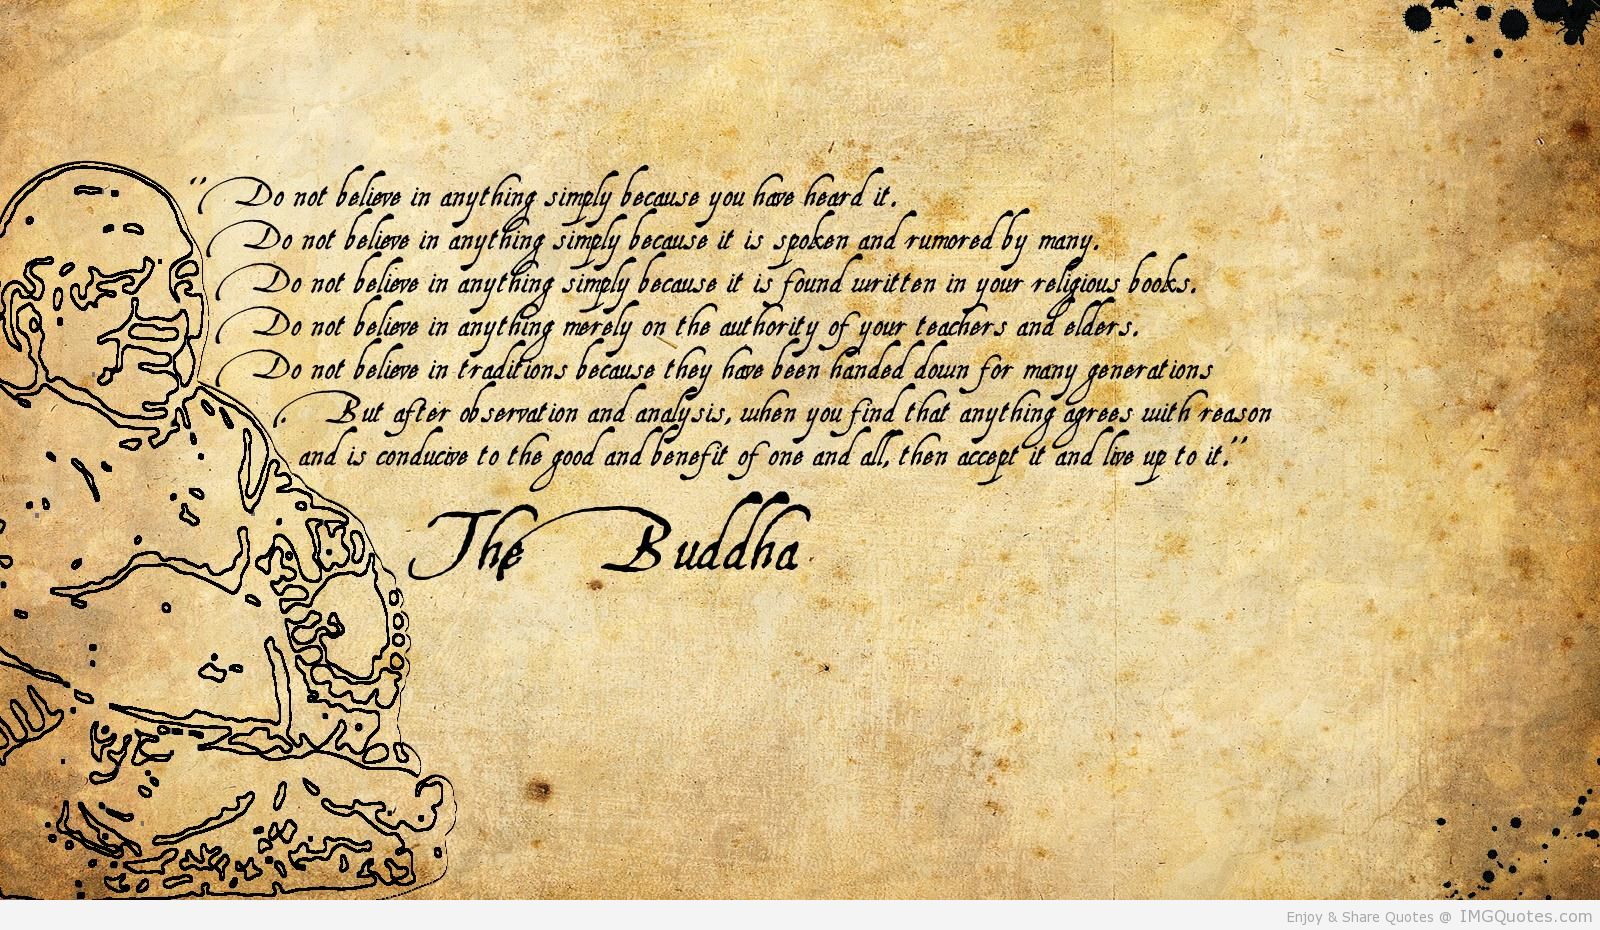 “Do not believe in anything simply because you have heard it.
Do not believe in anything simply because it is spoken and rumored by many.
Do not believe in anything simply because it is found written in your religious books.
Do not believe in anything merely on the authority of your teachers and elders.
Do not believe in traditions because they have been handed down for many generations
. But after observation and analysis, when you find that anything agrees with reason
and is conducive to the good and benefit of one and all, then accept it and live up to it.”
The Buddha
Enjoy & Share Quotes @ IMGQuotes.com